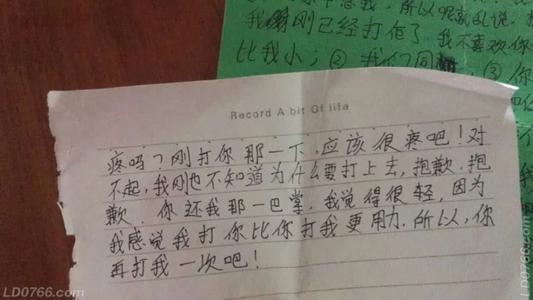 我刚已经打佢了我不喜欢你
比我小；②我们同
③你
Record A bit Of life
疼吗？刚打你那一下,应该很疼吧！对
不起,我刚也不知道为什么要打上去,抱歉.抱
歉.你还我那一巴掌.我觉得很轻,因为
我感觉我打你比你打我更用力.所以,你
再打我一次吧！
LD0766.com
LD0766.com